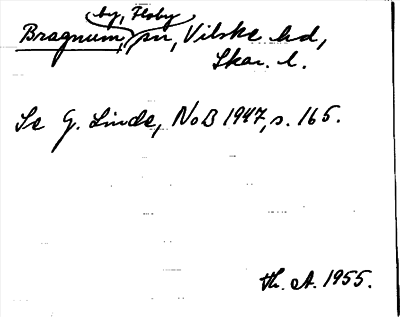 by, Floby
Bragnum, sn, Vilske hd,
Skar. l.
Se G. Linde, NoB 1947, s. 165.
th. A. 1955.